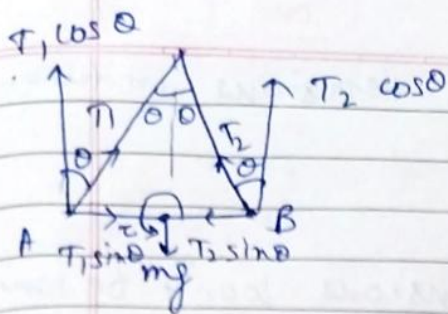 T₁ cos θ
T₂ cosθ
T1
θ θ
T₂
θ
θ
A
B
τ
T₁sinθ
T₂ sinθ
mg